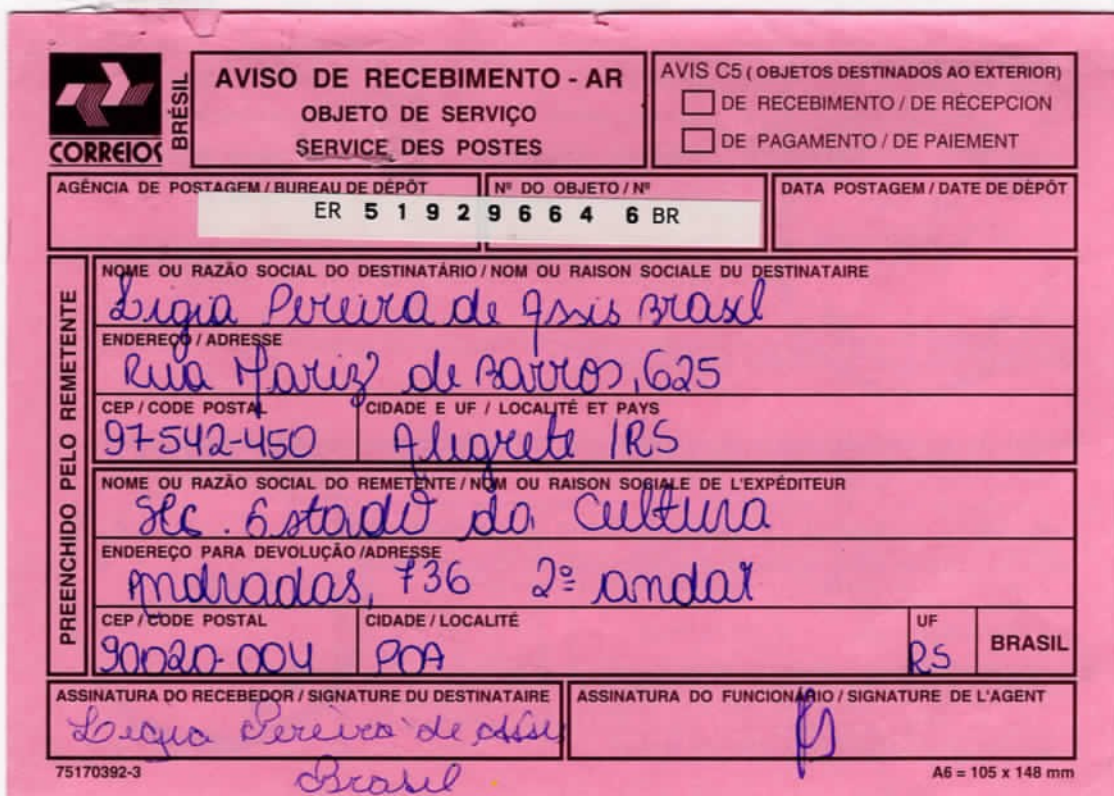 CORREIOS
BRÉSIL
AVISO DE RECEBIMENTO - AR
OBJETO DE SERVIÇO
SERVICE DES POSTES
AVIS C5 ( OBJETOS DESTINADOS AO EXTERIOR)
DE RECEBIMENTO / DE RÉCEPCION
DE PAGAMENTO / DE PAIEMENT
AGÊNCIA DE POSTAGEM / BUREAU DE DÉPÔT
Nº DO OBJETO / Nº
DATA POSTAGEM / DATE DE DÉPÔT
ER 5 1 9 2 9 6 6 4 6 BR
PREENCHIDO PELO REMETENTE
NOME OU RAZÃO SOCIAL DO DESTINATÁRIO / NOM OU RAISON SOCIALE DU DESTINATAIRE
Ligia Pereira de Assis Brasil
ENDEREÇO / ADRESSE
Rua Mariz de Barros, 625
CEP / CODE POSTAL
CIDADE E UF / LOCALITÉ ET PAYS
97542-450
Alegrete /RS
NOME OU RAZÃO SOCIAL DO REMETENTE / NOM OU RAISON SOCIALE DE L'EXPÉDITEUR
Sec. Estado da Cultura
ENDEREÇO PARA DEVOLUÇÃO /ADRESSE
Andradas, 736 2º andar
CEP / CODE POSTAL
CIDADE / LOCALITÉ
UF
BRASIL
90020-004
POA
RS
ASSINATURA DO RECEBEDOR / SIGNATURE DU DESTINATAIRE
ASSINATURA DO FUNCIONÁRIO / SIGNATURE DE L'AGENT
Ligia Pereira de Assis
Brasil
75170392-3
A6 = 105 x 148 mm